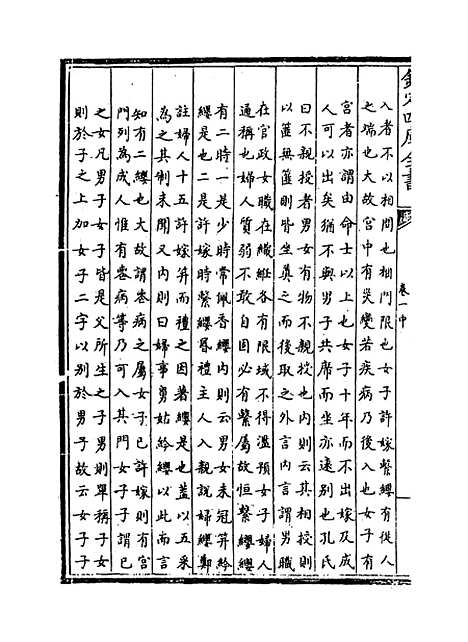 欽定四庫全書
卷一中
入者不以相問也相門限也女子許嫁繫纓有從人
之端也大故宫中有災變若疾病乃後入也女子有
宫者亦謂由命士以上也女子十年而不出嫁及成
人可以出矣猶不與男子共席而坐亦遠别也孔氏
曰不親授者男女有物不親授也内則云其相授則
以篚無篚則皆坐奠之而後取之外言内言謂男職
在官政女職在織紝各有限域不得濫預女子婦人
通稱也婦人質弱不敢自固必有繫屬故恒繫纓纓
有二時一是少時常佩香纓内則云男女未冠笄紟
纓是也二是許嫁時繫纓昬禮主人入親說婦纓鄭
註婦人十五許嫁笄而禮之因著纓是也蓋以五采
為之其制未聞又内則云婦事舅姑紟纓以此而言
知有二纓也大故謂喪病之屬女子已許嫁則有宫
門列為成人惟有喪病等乃可入其門女子子謂已
之女凡男子女子皆是父所生之子男則單稱子女
則於子之上加女子二字以别於男子故云女子子